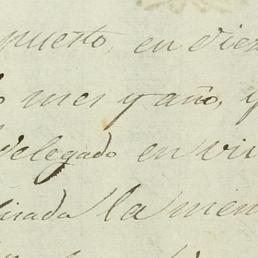 puesto, en diez
mes y año, y
delegado en vir
tirada la men